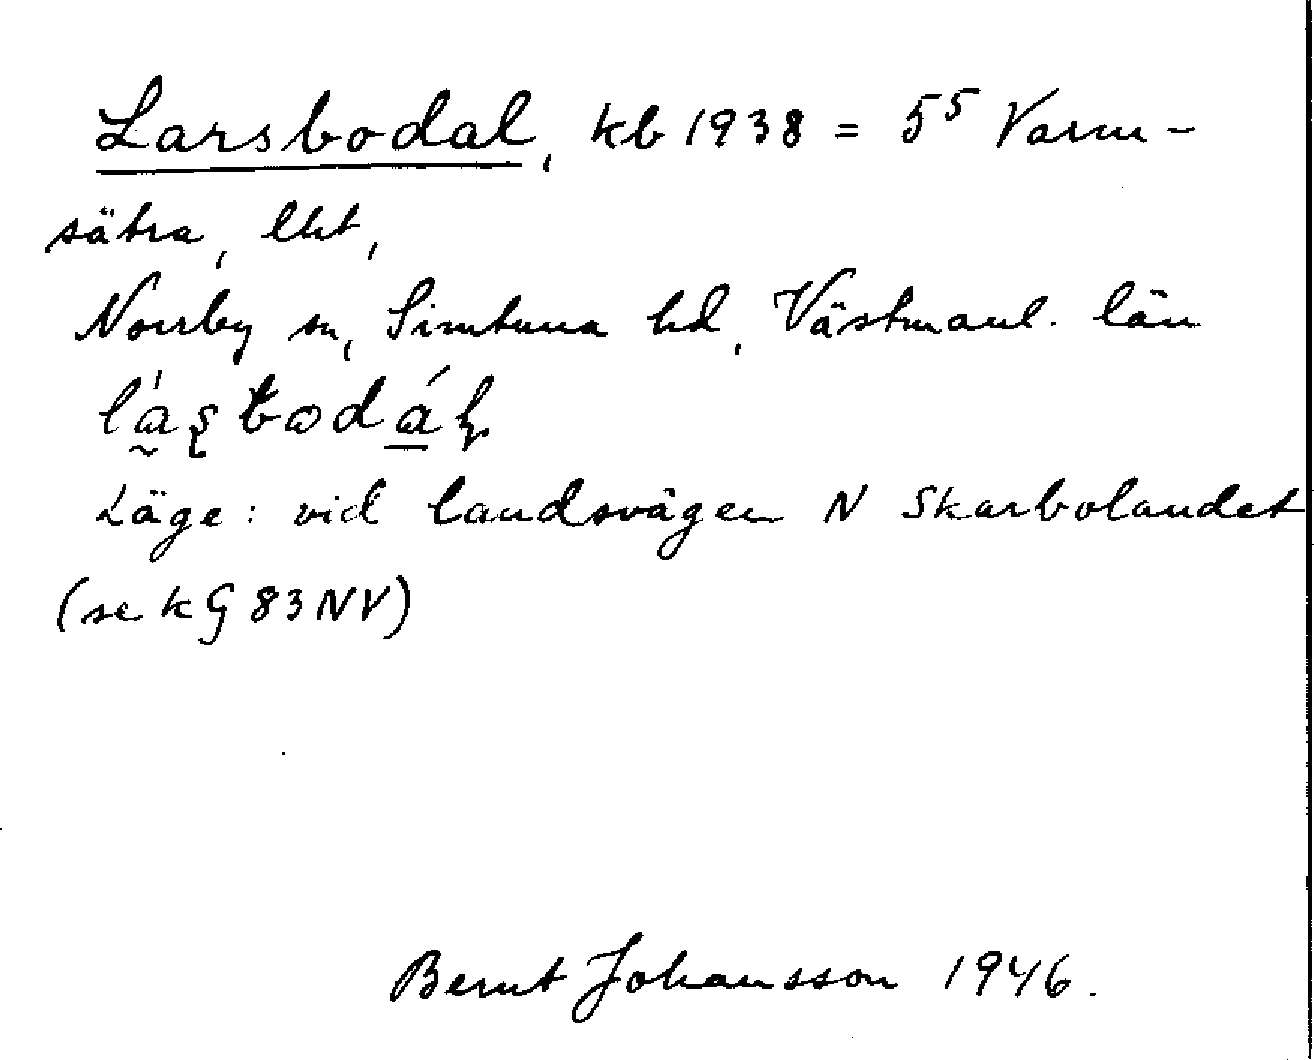 Larsbodal, kb 1938 = 5⁵ Varm-
sätra, lht,
Norrby sn, Simtuna hd, Västmanl. län
Läge: vid landsvägen N Skarbolandet
(se k G 83 NV)
Bernt Johansson 1946.